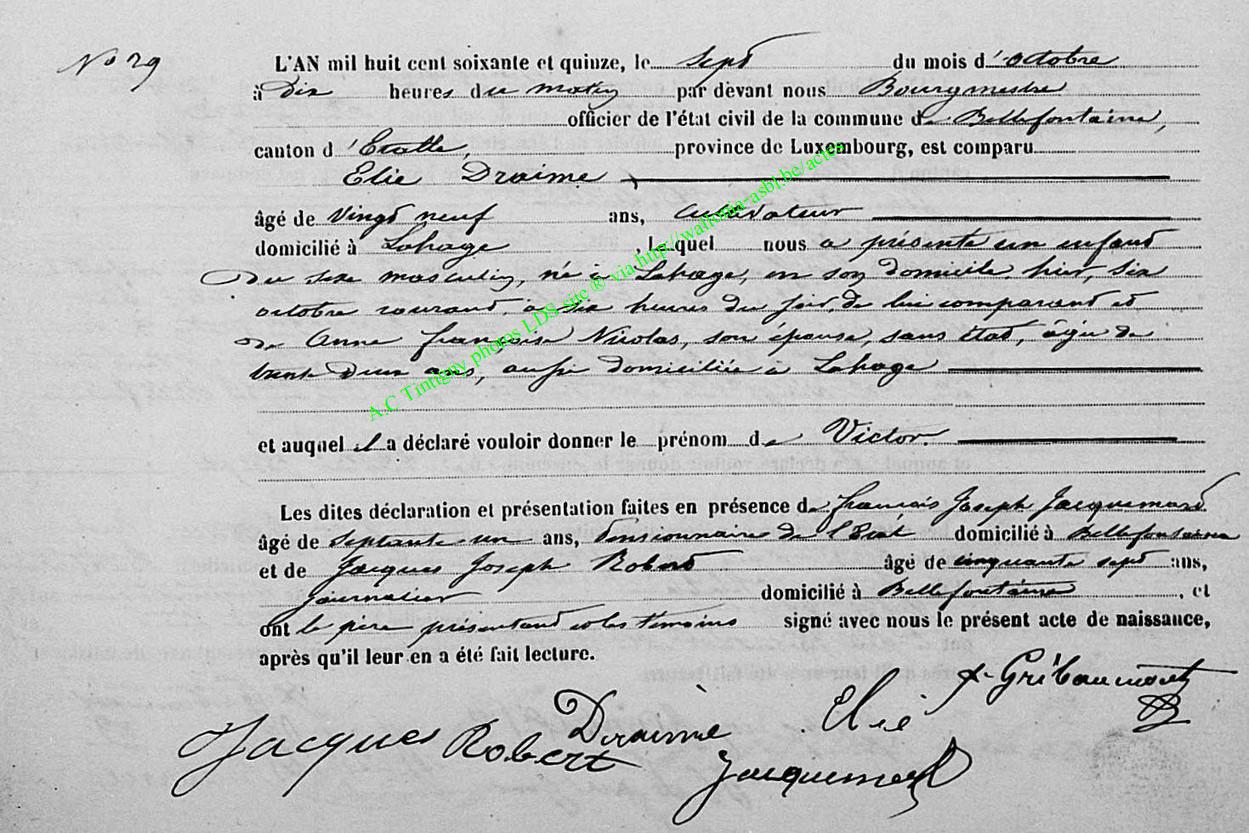 No 29
L'AN mil huit cent soixante et quinze, le sept du mois d'octobre
à Dix heures du matin par devant nous Bourgmestre
officier de l'état civil de la commune de Bellefontaine,
canton d'Etalle, province de Luxembourg, est comparu
Elie Draime
âgé de vingt neuf ans, cultivateur
domicilié à Lahage, lequel nous a présenté un enfant
du sexe masculin, né à Lahage, en son domicile hier, six
octobre courant, à six heures du soir, de lui comparant et
de Anne françoise Nicolas, son épouse, sans état, âgée de
trente deux ans, aussi domiciliée à Lahage
et auquel il a déclaré vouloir donner le prénom de Victor.
Les dites déclaration et présentation faites en présence de françois Joseph Jacquemard
âgé de septante un ans, Pensionnaire de l'Etat domicilié à Bellefontaine
et de Jacques Joseph Robert âgé de cinquante sept ans,
journalier domicilié à Bellefontaine, et
ont le père présentant et les témoins signé avec nous le présent acte de naissance,
après qu'il leur en a été fait lecture.
Gribaumont
Draime Elie
Jacques Robert
Jacquemard
A.C Tintigny photos LDS site ® via http://wallonia-asbl.be/actes